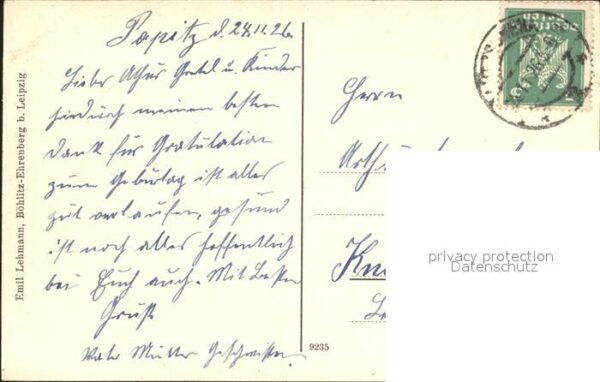 Papitz d. 24.11.26
Lieber Athur Gretel u. Kinder
hirdurch meinen besten
Dank für Gratulation
zum Geburtag ist alles
gut verlaufen, gesund
ist noch alles hoffentlich
bei Euch auch. Mit besten
Gruß
Vater Mutter Geschwister
Emil Lehmann, Böhlitz-Ehrenberg b. Leipzig
9235
Herrn
Arthu
privacy protection
Datenschutz